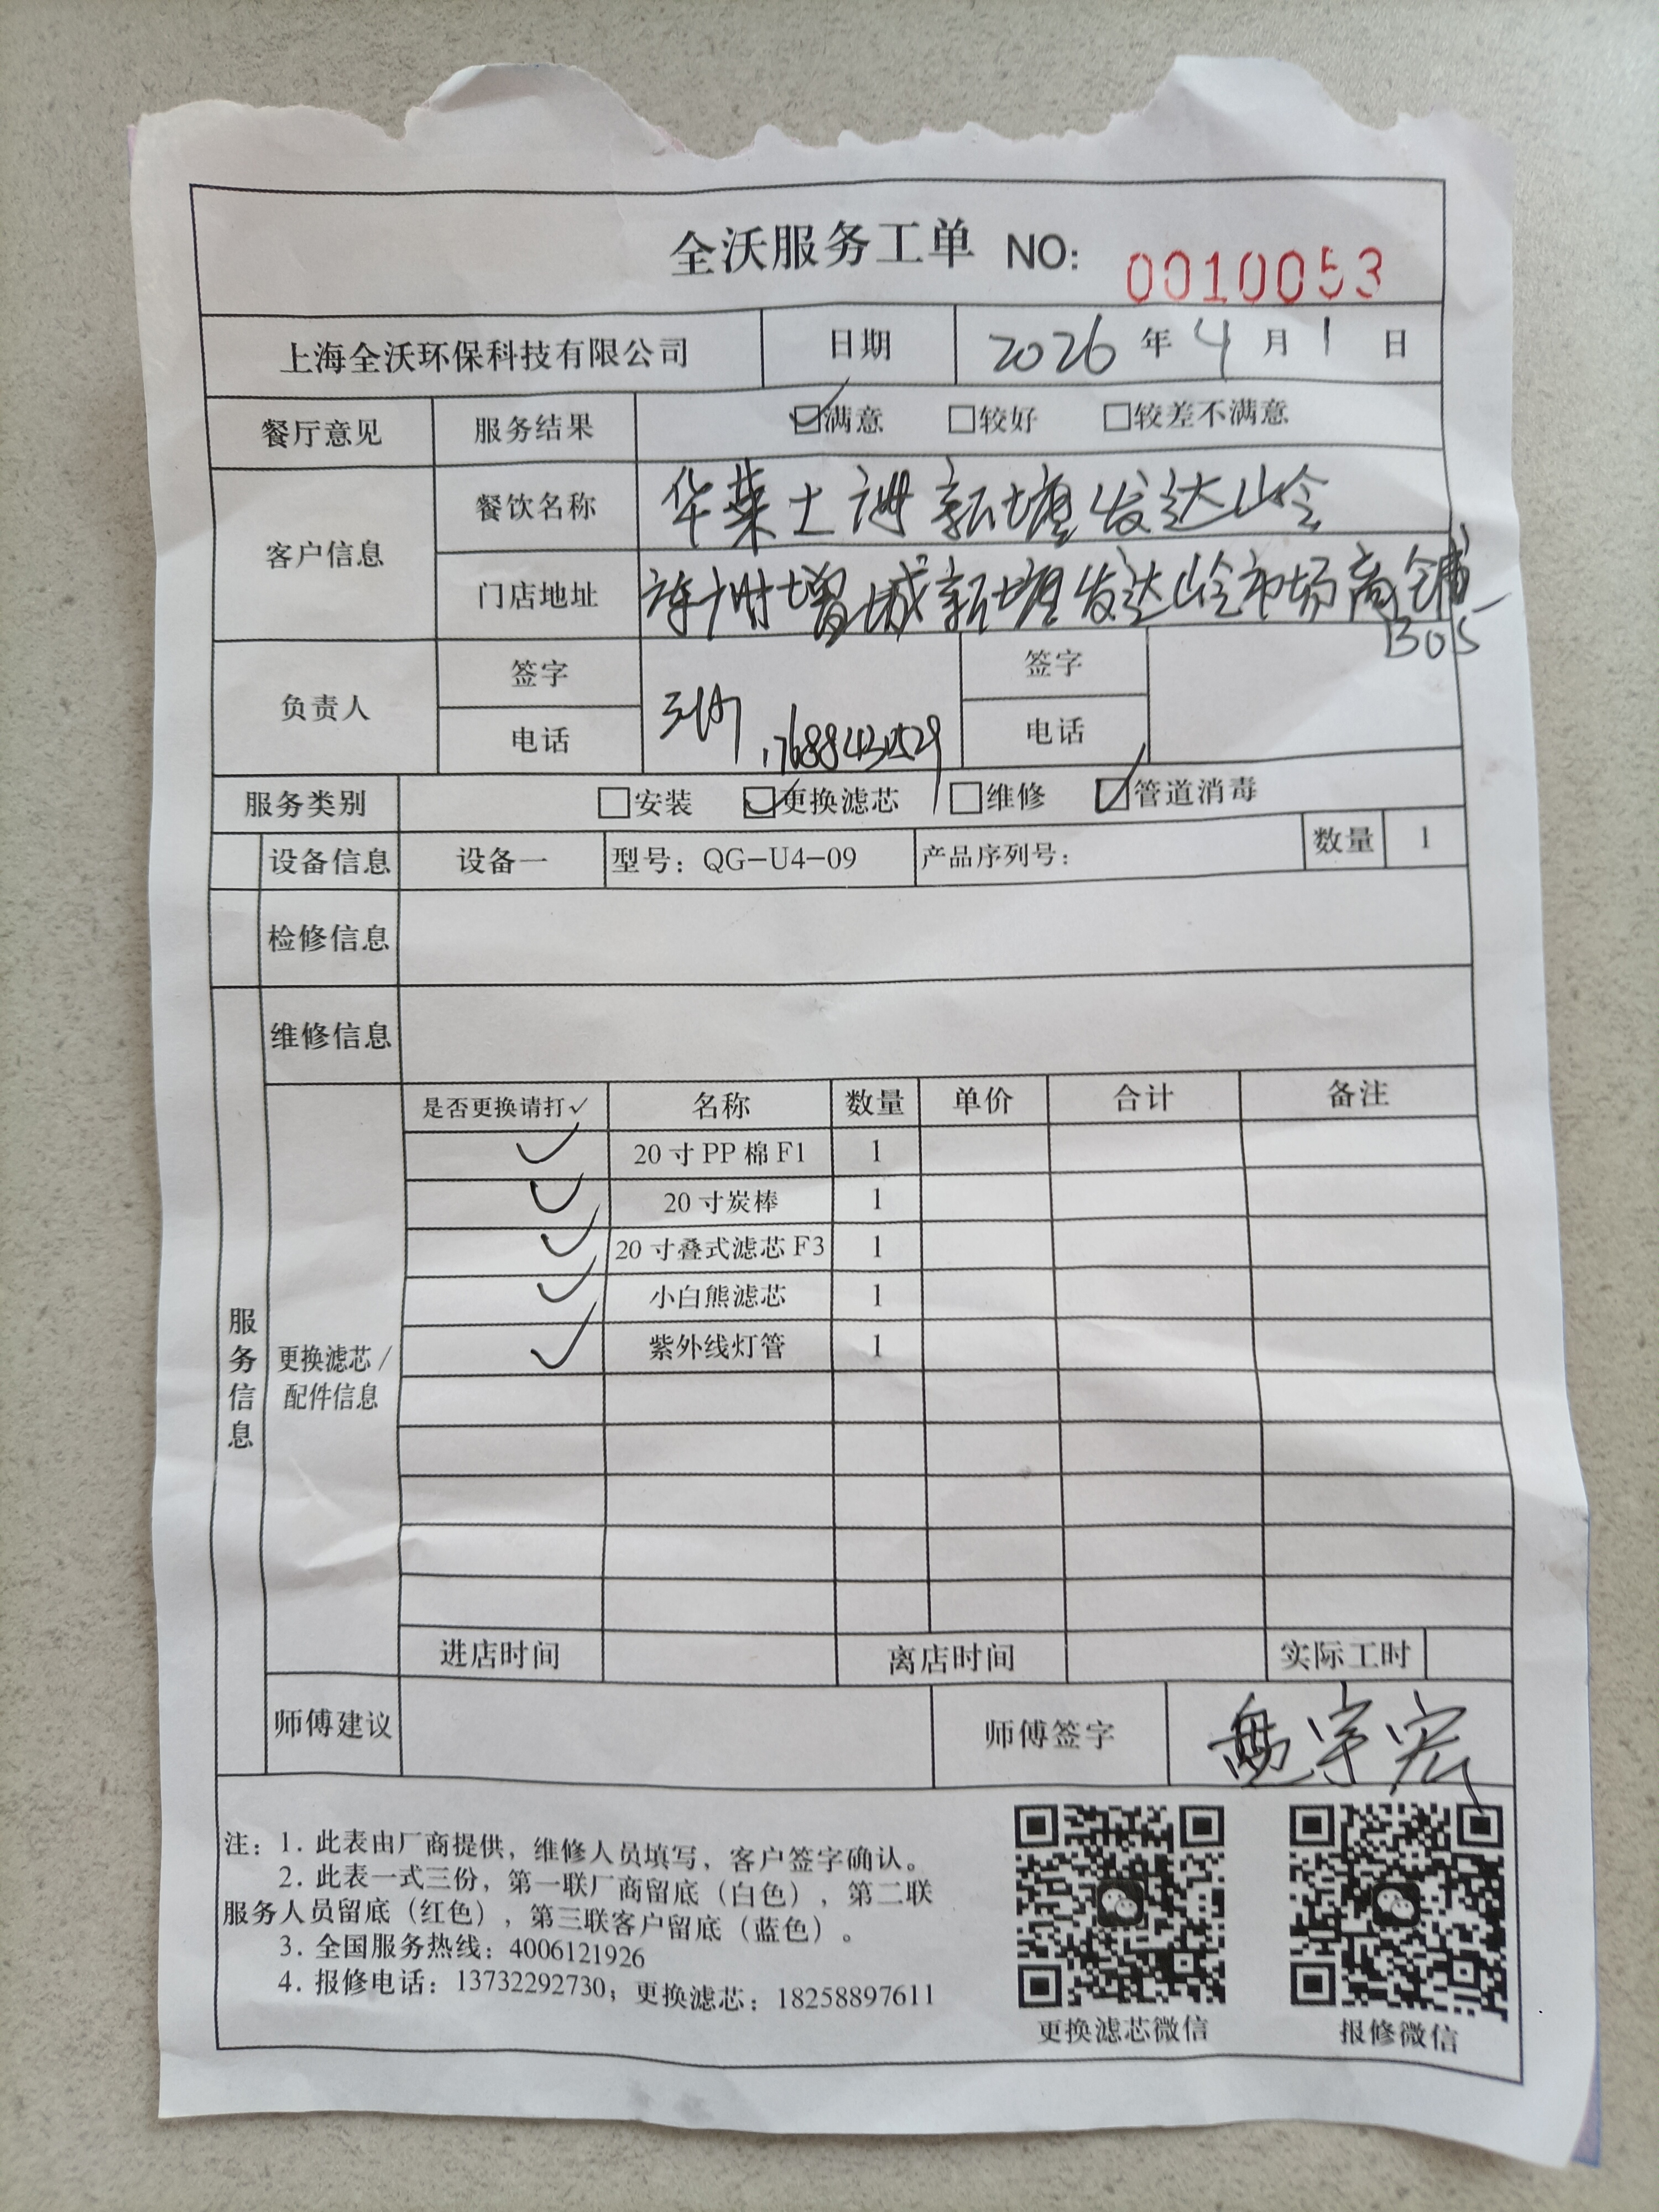 全沃服务工单 NO: 0010053
上海全沃环保科技有限公司 日期 2026 年 4 月 1 日
餐厅意见 服务结果 ☑满意 □较好 □较差不满意
客户信息
餐饮名称 华莱士 新塘发达岭
门店地址 增城新塘发达岭市场商铺
B05
负责人
签字 签字
电话 电话
服务类别 □安装 ☑更换滤芯 □维修 ☑管道消毒
设备信息 设备一 型号：QG-U4-09 产品序列号： 数量 1
检修信息
维修信息
服务信息
更换滤芯/
配件信息
是否更换请打✓ 名称 数量 单价 合计 备注
✓ 20寸PP棉F1 1
✓ 20寸炭棒 1
✓ 20寸叠式滤芯F3 1
✓ 小白熊滤芯 1
✓ 紫外线灯管 1
进店时间 离店时间 实际工时
师傅建议 师傅签字 宇宏
注：1. 此表由厂商提供，维修人员填写，客户签字确认。
2. 此表一式三份，第一联厂商留底（白色），第二联
服务人员留底（红色），第三联客户留底（蓝色）。
3. 全国服务热线：4006121926
4. 报修电话：13732292730；更换滤芯：18258897611
更换滤芯微信 报修微信